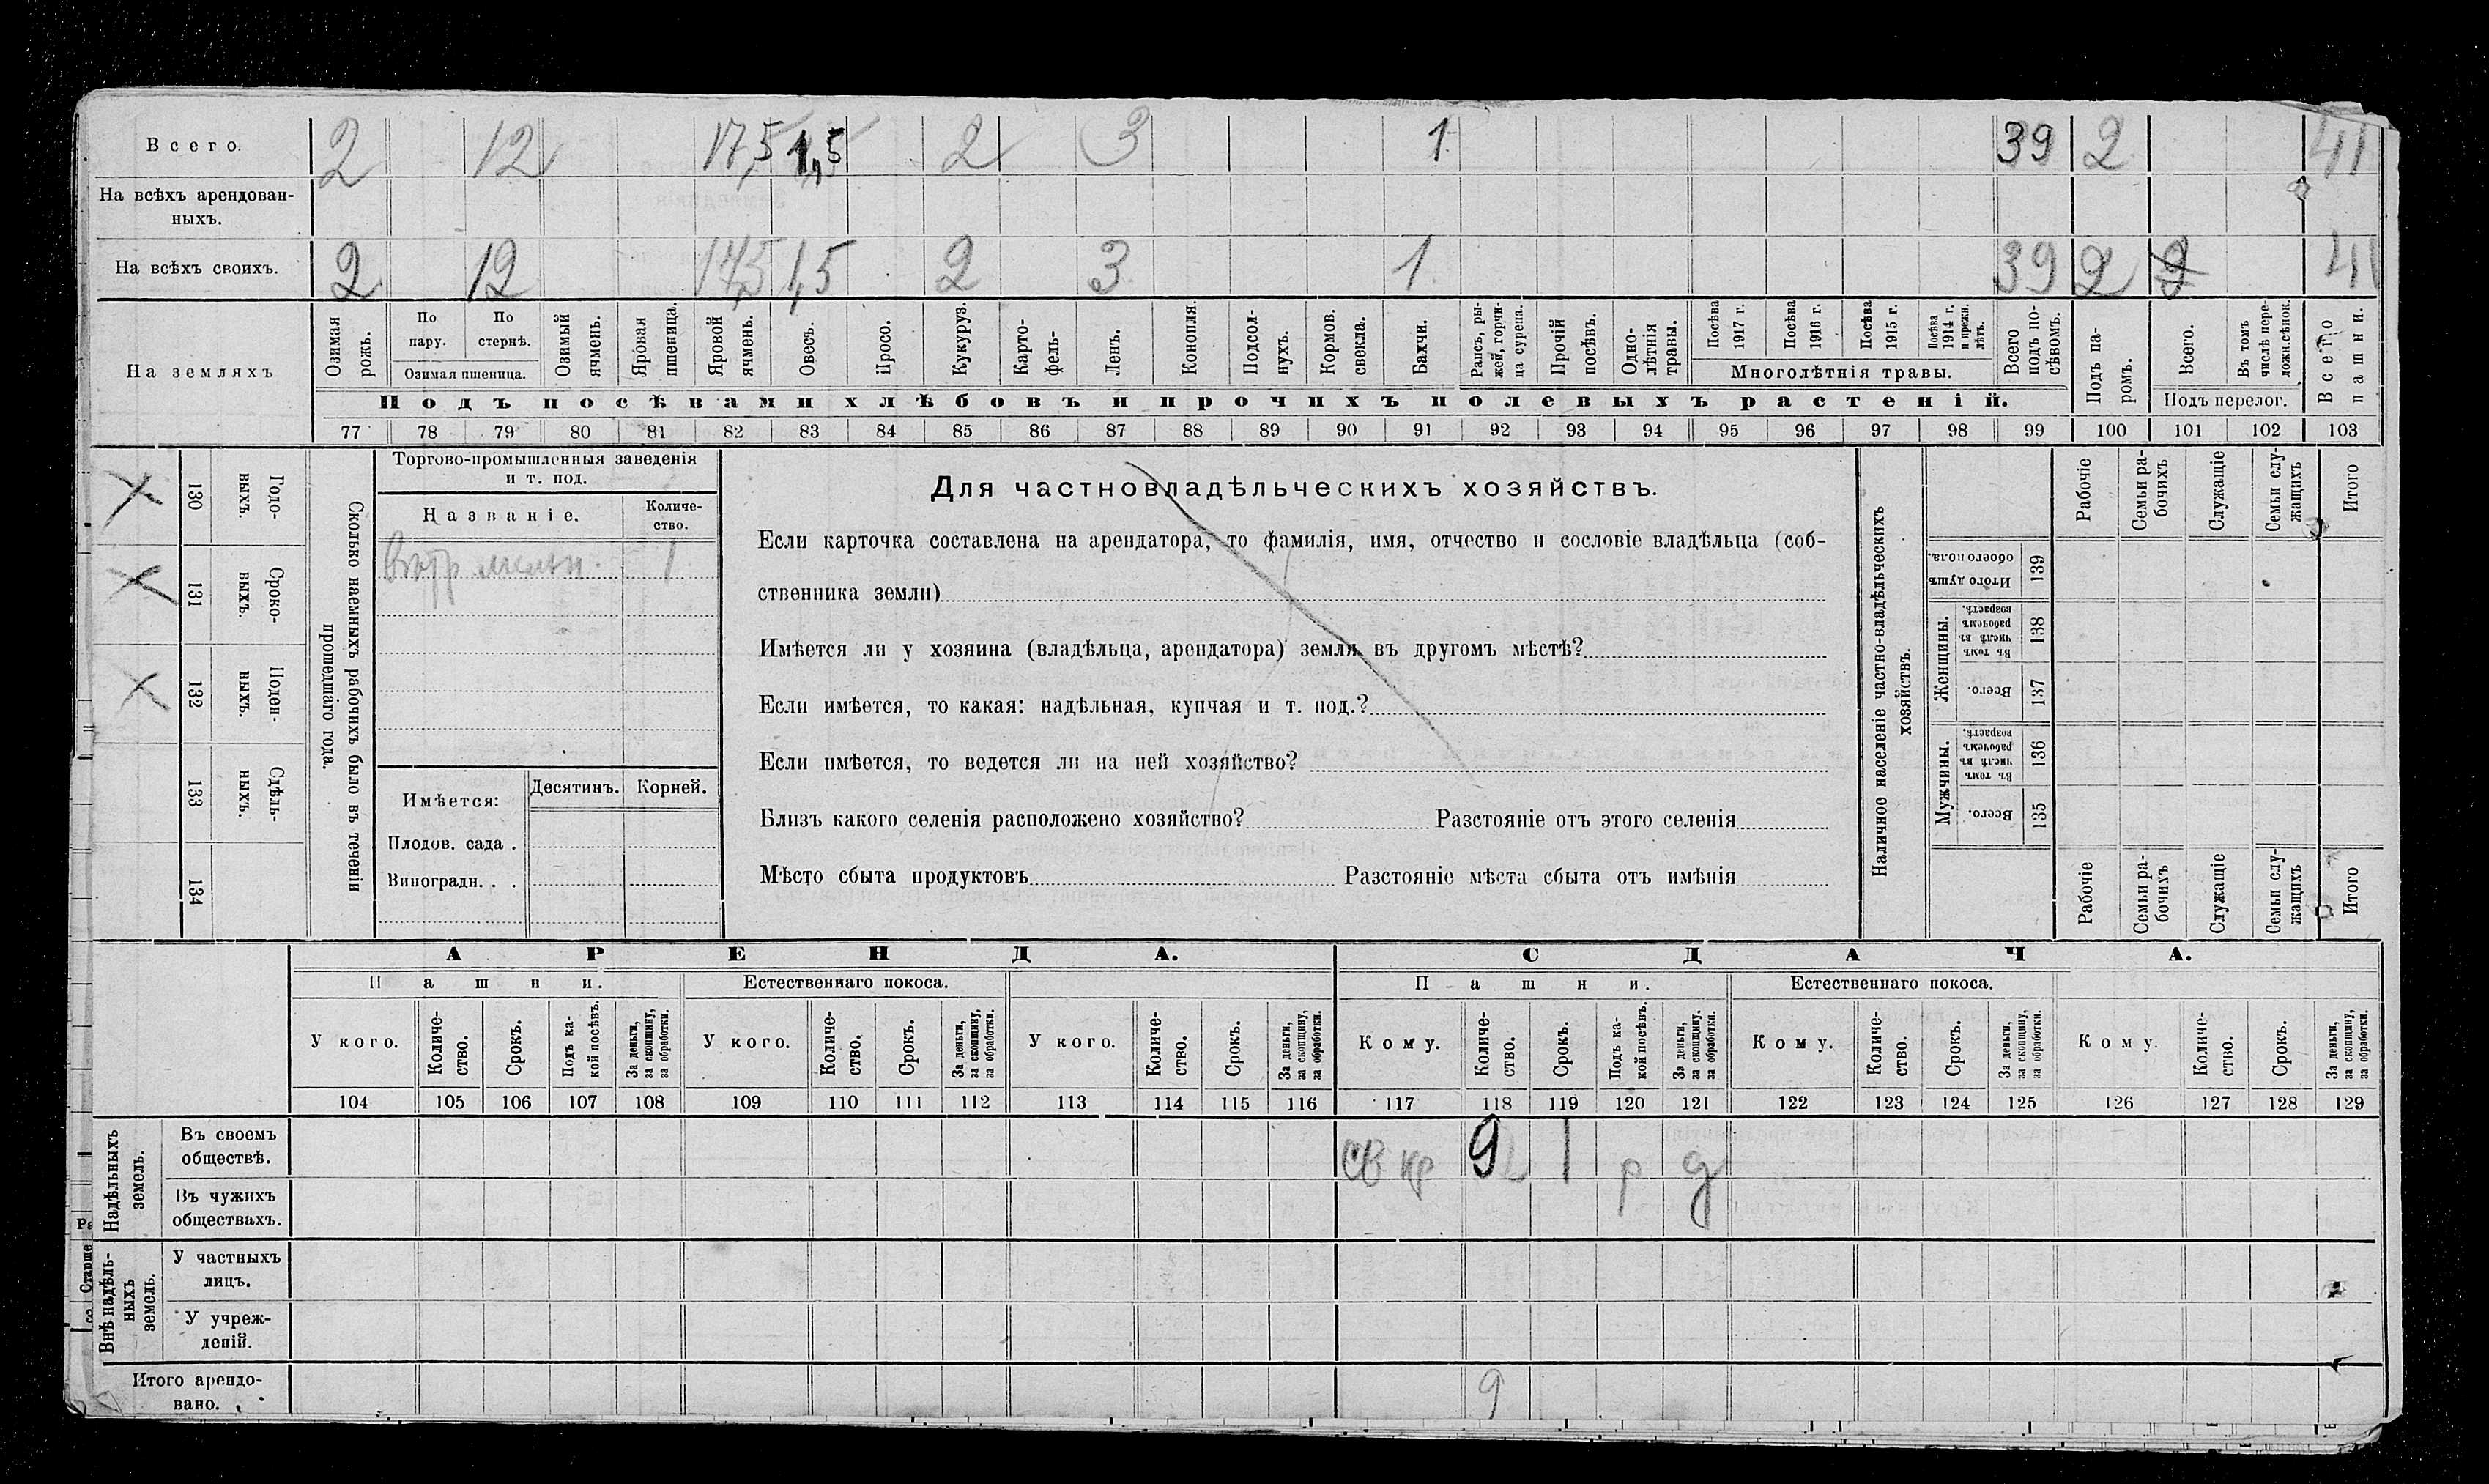 Всего. 2 12 17,5 1,5 2 3 1 39 2 41
На всѣхъ арендован-
ныхъ.
На всѣхъ своихъ. 2 12 17,5 1,5 2 3 1 39 2 2 41
На земляхъ
Озимая рожь.
По пару.
По стернѣ.
Озимая пшеница.
Озимый ячмень.
Яровая пшеница.
Яровой ячмень.
Овесъ.
Просо.
Кукуруз.
Карто-
фель-
Ленъ.
Конопля.
Подсол-
нухъ.
Кормов.
свекла.
Бахчи.
Рапсъ, ры-
жей, горчи-
ца сурепа.
Прочій
посѣвъ.
Одно-
лѣтнія
травы.
Посѣва
1917 г.
Посѣва
1916 г.
Посѣва
1915 г.
Посѣва
1914 г.
и прежн.
лѣтъ.
Многолѣтнія травы.
Всего
подъ по-
сѣвомъ.
Подъ па-
ромъ.
Всего.
Въ томъ
числѣ пере-
ложн.сѣнок.
Подъ перелог.
Всего
пашни.
Подъ посѣвами хлѣбовъ и прочихъ полевыхъ растеній.
77 78 79 80 81 82 83 84 85 86 87 88 89 90 91 92 93 94 95 96 97 98 99 100 101 102 103
Годо-
выхъ.
130
Сроко-
выхъ.
131
Поден-
ныхъ.
132
Сдѣль-
ныхъ.
133
134
Сколько наемныхъ рабочихъ было въ теченіи
прошедшаго года.
Торгово-промышленныя заведенія
и т. под.
Названіе.
Количе-
ство.
Вѣтр мельн. 1
Имѣется:
Десятинъ.
Корней.
Плодов. сада .
Виноградн. . .
Для частновладѣльческихъ хозяйствъ.
Если карточка составлена на арендатора, то фамилія, имя, отчество и сословіе владѣльца (соб-
ственника земли)
Имѣется ли у хозяина (владѣльца, арендатора) земля въ другомъ мѣстѣ?
Если имѣется, то какая: надѣльная, купчая и т. под.?
Если имѣется, то ведется ли на ней хозяйство?
Близъ какого селенія расположено хозяйство? Разстояніе отъ этого селенія
Мѣсто сбыта продуктовъ Разстояніе мѣста сбыта отъ имѣнія
Наличное населеніе частно-владѣльческихъ
хозяйствъ.
Рабочіе
Семьи ра-
бочихъ
Служащіе
Семьи слу-
жащихъ
Итого
Итого душъ
обоего пола.
139
Женщины.
Въ томъ
числѣ въ
рабочемъ
возрастѣ.
138
Всего.
137
Мужчины.
Въ томъ
числѣ въ
рабочемъ
возрастѣ.
136
Всего.
135
Рабочіе
Семьи ра-
бочихъ
Служащіе
Семьи слу-
жащихъ
Итого
АРЕНДА.
СДАЧА.
Пашни.
Естественнаго покоса.
Пашни.
Естественнаго покоса.
У кого.
Количе-
ство.
Срокъ.
Подъ ка-
кой посѣвъ.
За деньги,
за скопщину,
за обработки.
У кого.
Количе-
ство.
Срокъ.
За деньги,
за скопщину,
за обработки.
У кого.
Количе-
ство.
Срокъ.
За деньги,
за скопщину,
за обработки.
Кому.
Количе-
ство.
Срокъ.
Подъ ка-
кой посѣвъ.
За деньги,
за скопщину,
за обработки.
Кому.
Количе-
ство.
Срокъ.
За деньги,
за скопщину,
за обработки.
Кому.
Количе-
ство.
Срокъ.
За деньги,
за скопщину,
за обработки.
104 105 106 107 108 109 110 111 112 113 114 115 116 117 118 119 120 121 122 123 124 125 126 127 128 129
Надѣльныхъ
земель.
Въ своемъ
обществѣ.
св кр 9 1 р д
Въ чужихъ
обществахъ.
Внѣ надѣль-
ныхъ
земель.
У частныхъ
лицъ.
У учреж-
деній.
Итого арендо-
вано.
9
Старше